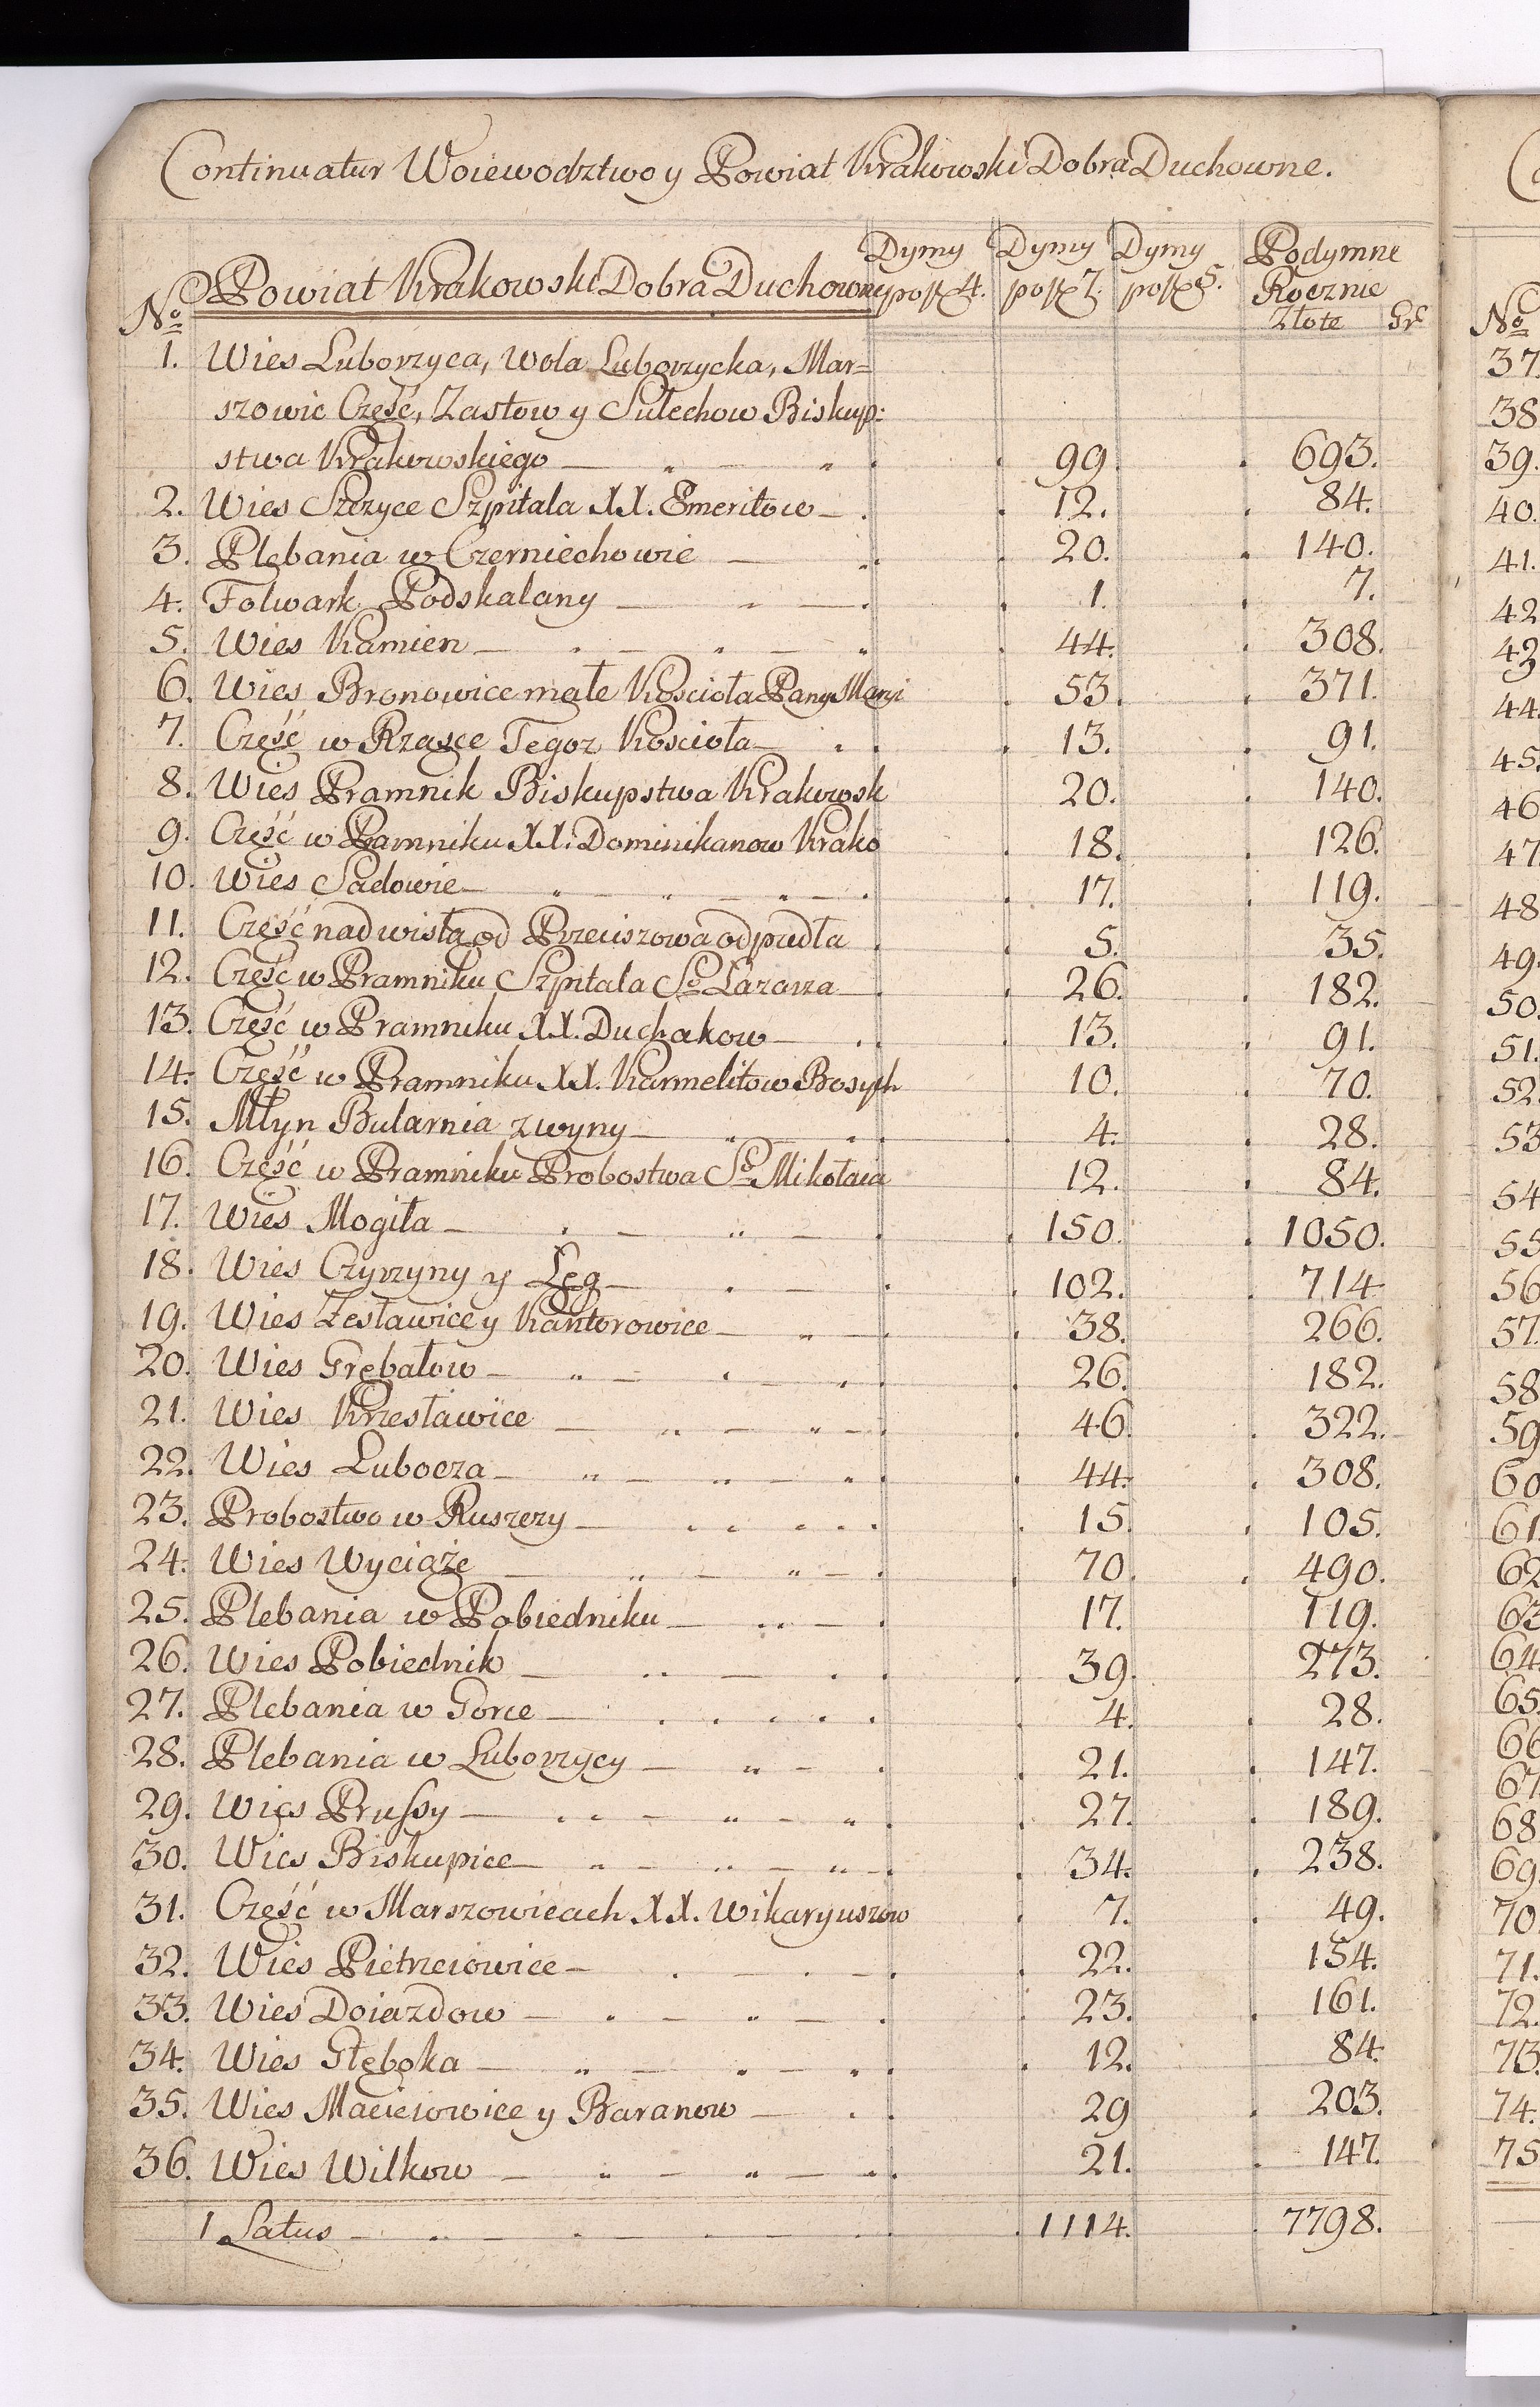 Continuatur Woiewodztwo y Powiat Krakowski Dobra Duchowne.
No Powiat Krakowski Dobra Duchowne Dymy po fl 4. Dymy po fl 7. Dymy po fl 5. Podymne Rocznie Złote Gr
1. Wies Luborzyca, Wola Luborzycka, Mar=
szowic Część, Zastow y Sulechow Biskup:
stwa Krakowskiego 99. 693.
2. Wies Szczyce Szpitala XX. Emeritow 12. 84.
3. Plebania w Czerniechowie 20. 140.
4. Folwark Podskalany 1. 7.
5. Wies Kamien 44. 308.
6. Wies Bronowice małe Kościoła Pany Maryi 53. 371.
7. Część w Rzasce Tegoz Kościoła 13. 91.
8. Wies Pramnik Biskupstwa Krakowsk 20. 140.
9. Część w Pramniku XX. Dominikanow Krako 18. 126.
10. Wies Sadowie 17. 119.
11. Część nad wisła od Przeciszowa odpadła 5. 35.
12. Część w Pramniku Szpitala So Łazarza 26. 182.
13. Część w Pramniku XX. Duchakow 13. 91.
14. Część w Pramniku XX. Karmelitow Bosych 10. 70.
15. Młyn Bularnia zwyny 4. 28.
16. Część w Pramniku Probostwa So Mikołaia 12. 84.
17. Wies Mogiła 150. 1050.
18. Wies Czyrzyny y Łęg 102. 714
19. Wies Zesławice y Kantorowice 38. 266.
20. Wies Grębałow 26. 182.
21. Wies Krzesławice 46 322.
22. Wies Lubocza 44. 308.
23. Probostwo w Ruszczy 15. 105.
24. Wies Wyciąże 70. 490.
25. Plebania w Pobiedniku 17. 119.
26. Wies Pobiednik 39. 273.
27. Plebania w Gorce 4. 28.
28. Plebania w Luborzycy 21. 147.
29. Wies Prussy 27. 189.
30. Wies Biskupice 34. 238.
31. Część w Marszowicach XX. Wikaryuszow 7. 49.
32. Wies Pietrzeiowice 22. 154.
33. Wies Doiazdow 23. 161.
34. Wies Głęboka 12. 84.
35. Wies Macieiowice y Baranow 29 203.
36. Wies Wilkow 21. 147.
1 Latus 1114. 7798.
No
37.
38
39.
40.
41.
42
43
44.
45.
46
47
48
49.
50.
51.
52.
53
54
55
56
57.
58
59
60
61.
62
63
64.
65.
66
67.
68
69.
70
71.
72.
73.
74.
75